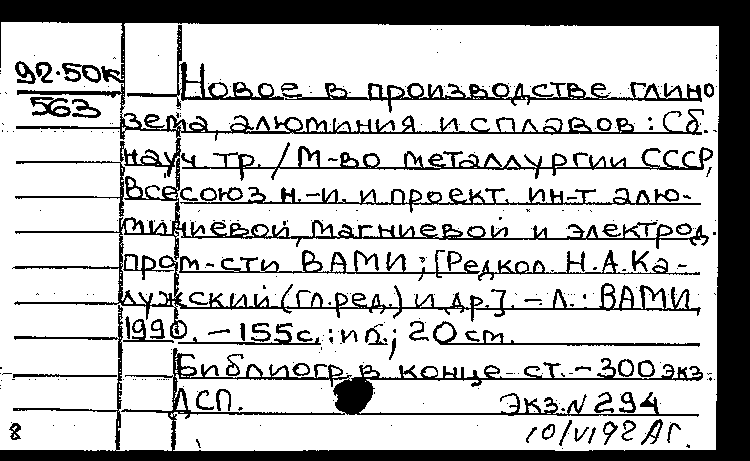 92-50к
563
Новое в производстве глино
зема, алюминия и сплавов : Сб.
науч тр. / М-во металлургии СССР,
Всесоюз н.-и. и проект. ин-т алю-
миниевой, магниевой и электрод.
пром-сти ВАМИ ; [Редкол. Н.А.Ка-
лужский (гл.ред.) и др.]. - Л. : ВАМИ,
1990. - 155с. : ил. ; 20 см.
Библиогр. в конце ст. - 300 экз.
ДСП.
Экз. N 294
8
10/VI 92 АГ.